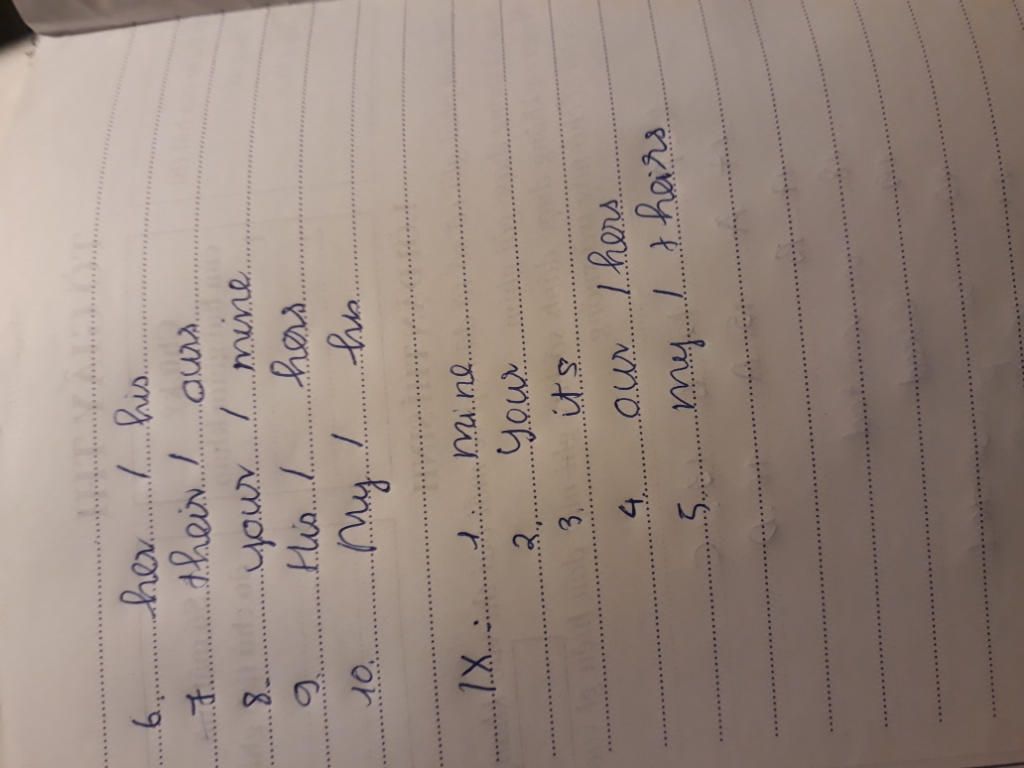 6. her / his
7 their / ours
8. your / mine
9. His / hers
10. My / his
IX. 1. mine
2. your
3. its
4. our / hers
5. my / theirs